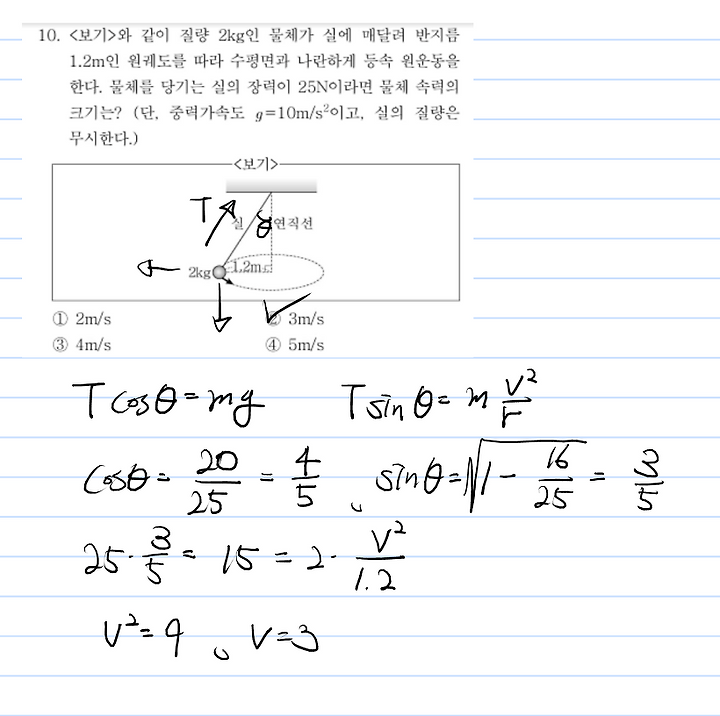 10. <보기>와 같이 질량 2kg인 물체가 실에 매달려 반지름
1.2m인 원궤도를 따라 수평면과 나란하게 등속 원운동을
한다. 물체를 당기는 실의 장력이 25N이라면 물체 속력의
크기는? (단, 중력가속도 g=10m/s²이고, 실의 질량은
무시한다.)
<보기>
T
실 θ 연직선
2kg 1.2m
① 2m/s ② 3m/s
③ 4m/s ④ 5m/s
Tcosθ=mg Tsinθ=m v²/r
cosθ= 20/25 = 4/5 , sinθ=√(1-16/25) = 3/5
25·3/5 = 15 = 2· v²/1.2
v²=9 , v=3